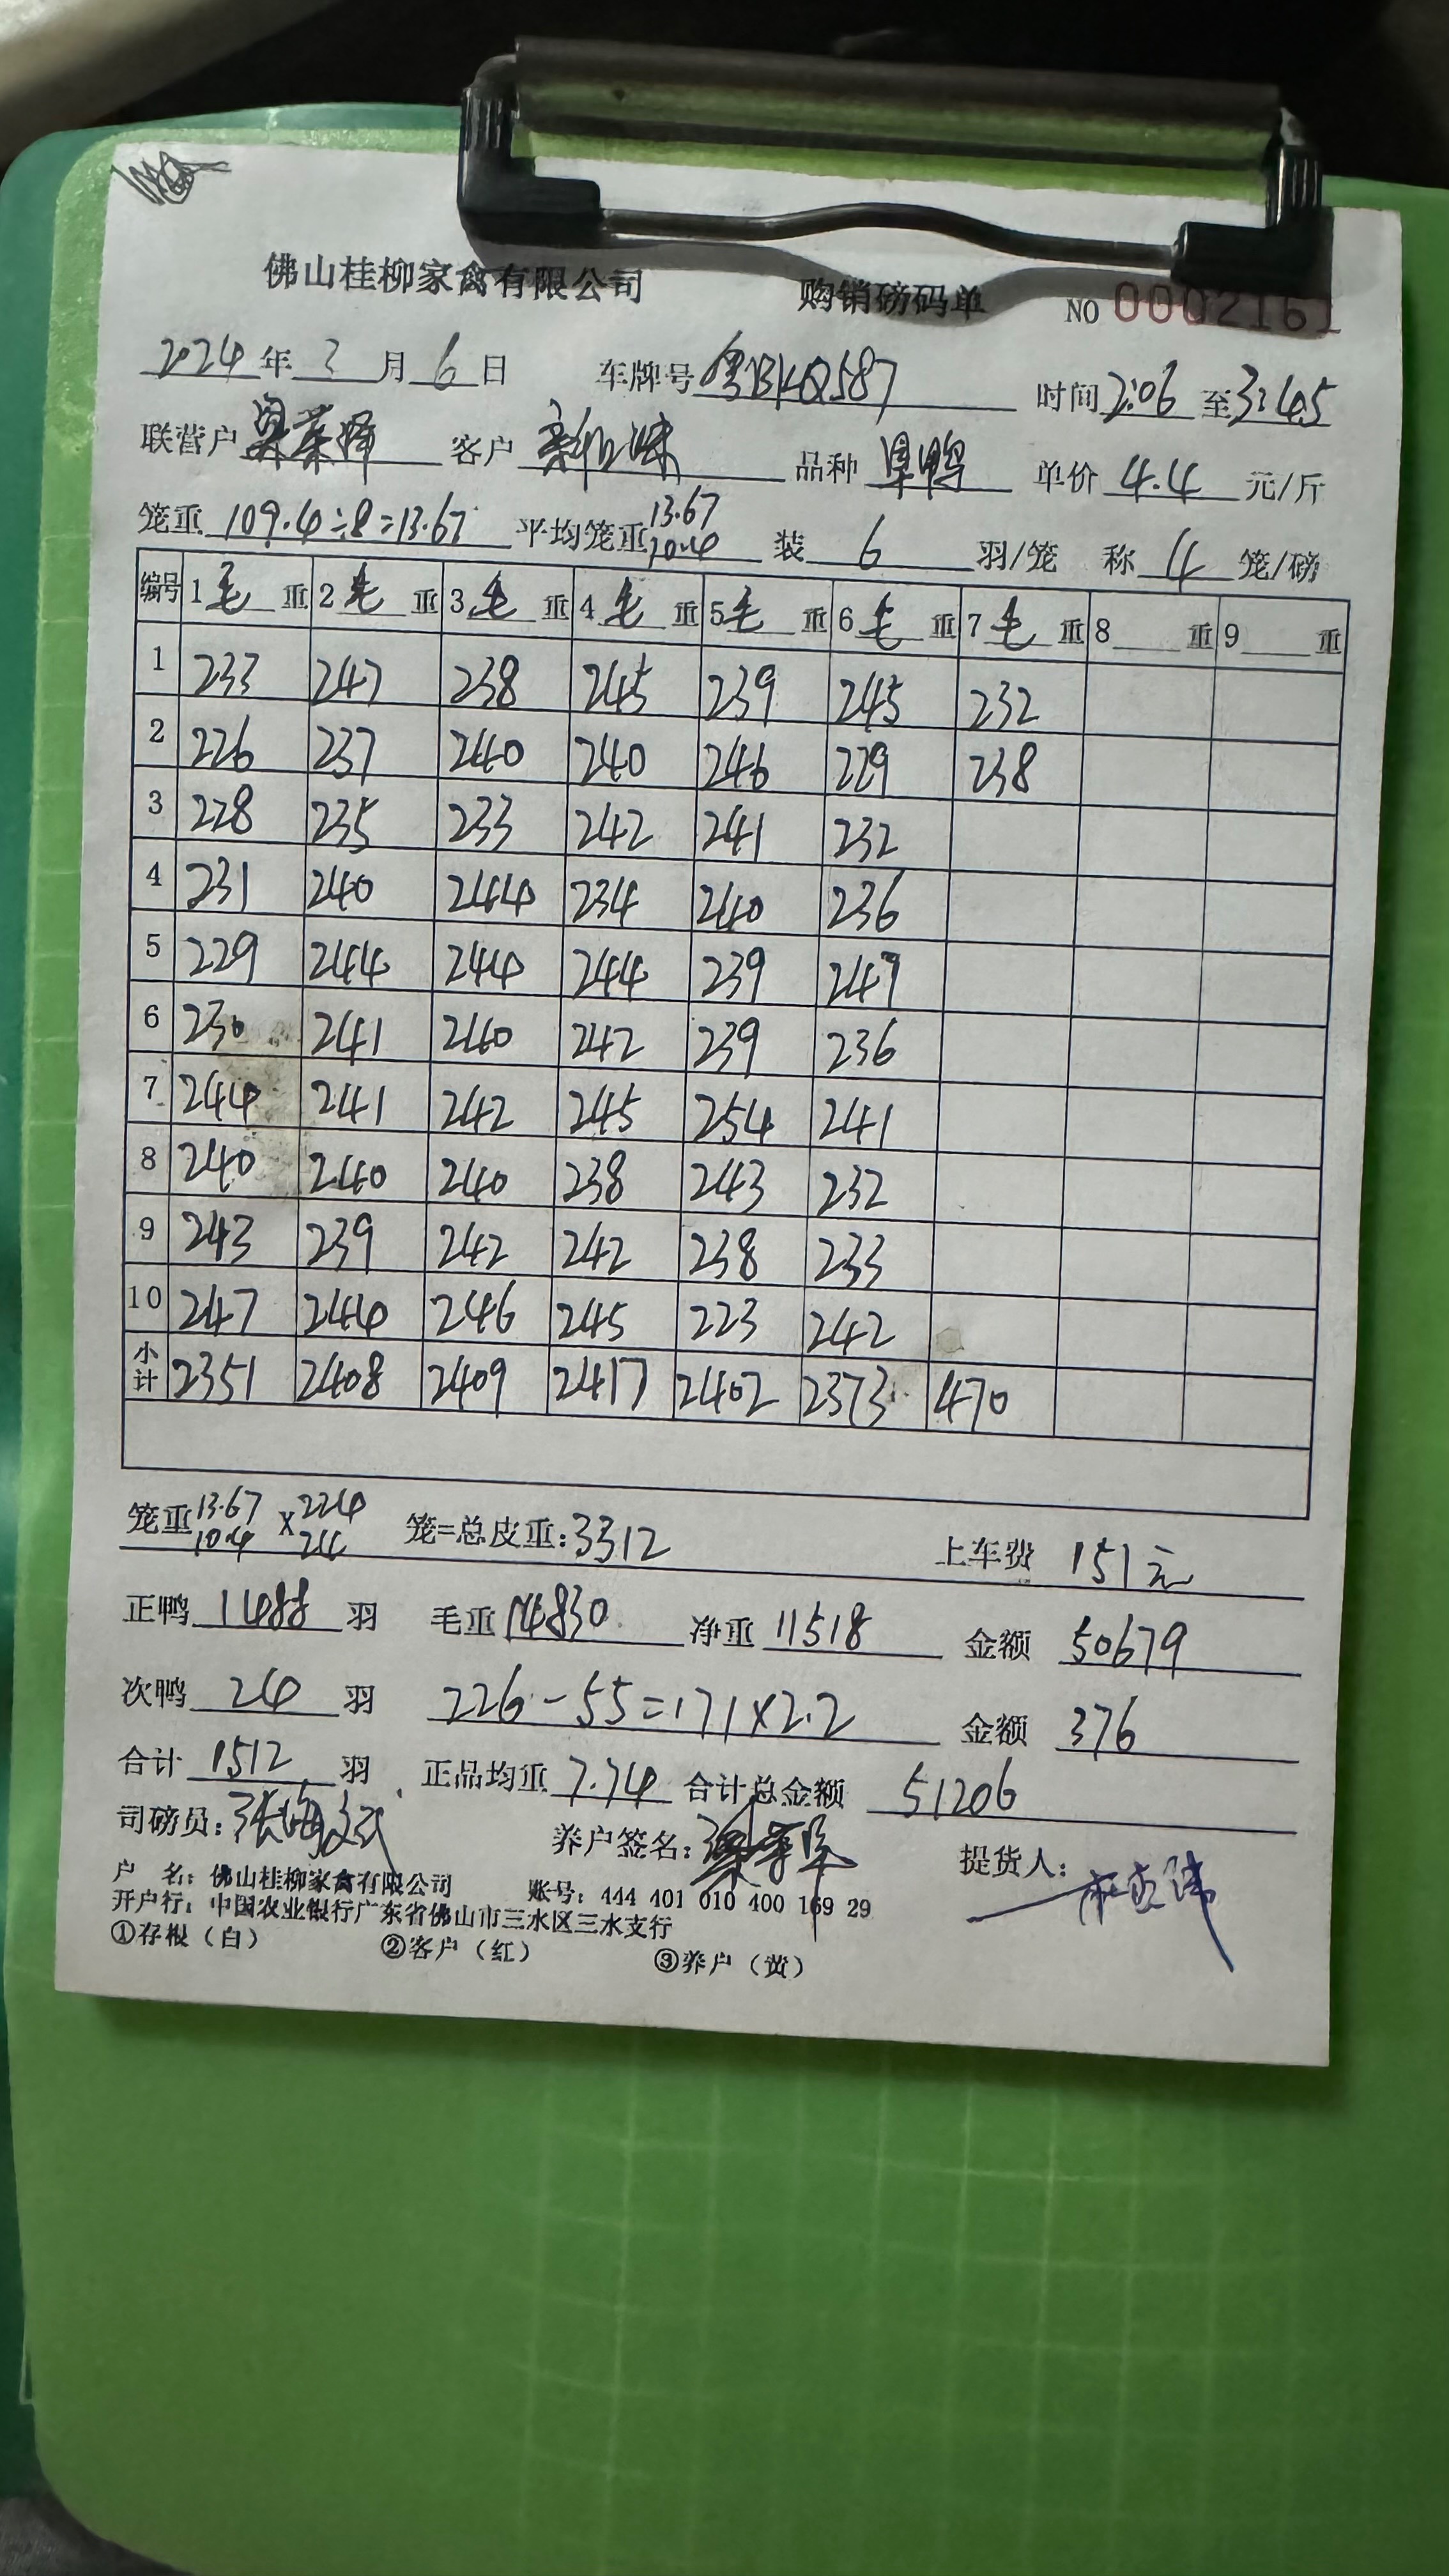 佛山桂柳家禽有限公司 购销磅码单 NO 0002161
2024 年 3 月 6 日 车牌号 粤BKQ587 时间 2:06 至 3:45
联营户 客户 品种 单价 4.4 元/斤
笼重 109.4÷8=13.67 平均笼重 13.67 10.4 装 6 羽/笼 称 4 笼/磅
编号 1 毛 重 2 毛 重 3 毛 重 4 毛 重 5 毛 重 6 毛 重 7 毛 重 8 重 9 重
1 233 247 238 245 239 245 232
2 226 237 240 240 246 229 238
3 228 235 233 242 241 232
4 231 240 244 234 240 236
5 229 244 244 244 239 247
6 230 241 240 242 239 236
7 244 241 242 245 254 241
8 240 240 240 238 243 232
9 243 239 242 242 238 233
10 247 244 246 245 223 242
小计 2351 2408 2409 2417 2402 2373 470
笼重 13.67 10.4 X 224 24 笼=总皮重: 3312 上车费 151元
正鸭 1488 羽 毛重 14830 净重 11518 金额 50679
次鸭 24 羽 226-55=171×2.2 金额 376
合计 1512 羽 正品均重 7.74 合计总金额 51206
司磅员: 养户签名: 提货人:
户 名: 佛山桂柳家禽有限公司 账号: 444 401 010 400 169 29
开户行: 中国农业银行广东省佛山市三水区三水支行
①存根（白） ②客户（红） ③养户（黄）